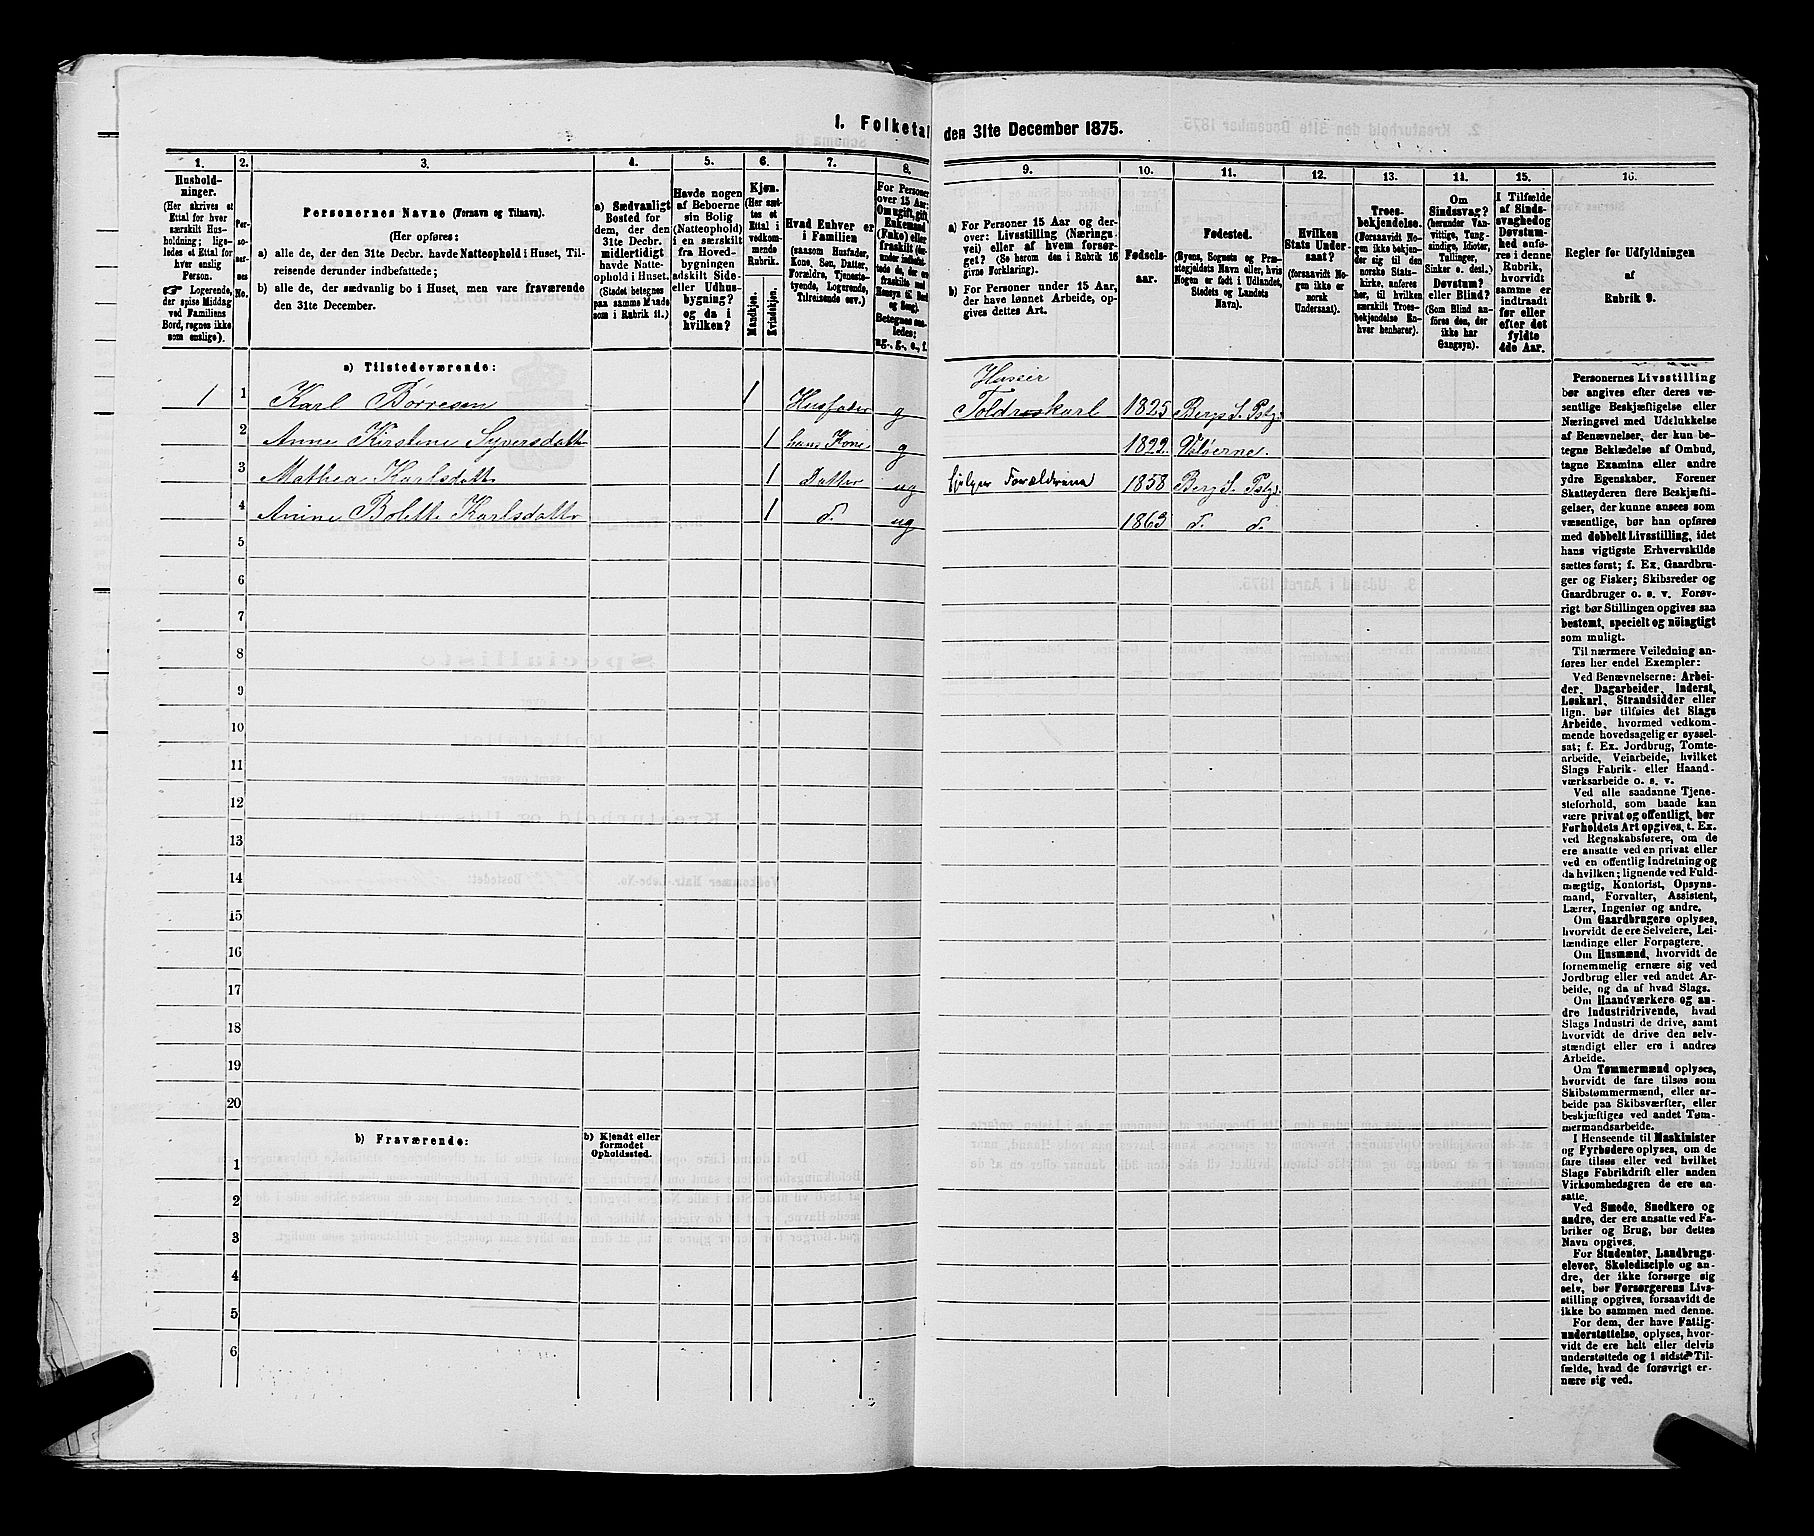 1. Folketal den 31te December 1875.
1. 2. 3. 4. 5. 6. 7. 8. 9. 10. 11. 12. 13. 14. 15. 16.
Hushold-
ninger.
(Her skrives et
Ettal for hver
særskilt Hus-
holdning; lige-
ledes et Ettal for
hver enslig
Person.
☛ Logerende,
der spise Middag
ved Familiens
Bord, regnes ikke
som enslige).
Per-
so-
ner-
nes
No.
Personernes Navne (Fornavn og Tilnavn).
(Her opføres:
a) alle de, der den 31te Decbr. havde Natteophold i Huset, Til-
reisende derunder indbefattede;
b) alle de, der sædvanlig bo i Huset, men vare fraværende
den 31te December.
a) Sædvanligt
Bosted for
dem, der den
31te Decbr.
midlertidigt
havde Natte-
ophold i Huset.
(Stedet betegnes
paa samme Maade
som i Rubrik 11.)
Havde nogen
af Beboerne
sin Bolig
(Natteophold)
i en særskilt
fra Hoved-
bygningen
adskilt Side-
eller Udhus-
bygning?
og da i
hvilken?
Kjøn.
(Her sæt-
tes et
Ettal i
vedkom-
mende
Rubrik.
Mandkjøn.
Kvindekjøn.
Hvad Enhver er
i Familien
(saasom Husfader,
Kone, Søn, Datter,
Forældre, Tjeneste-
tyende, Logerende,
Tilreisende osv.)
For Personer
over 15 Aar:
Om ugift, gift,
Enkemand
(Enke) eller
fraskilt
Betegnes saa-
ledes:
ug., g., e., f.
a) For Personer 15 Aar og der-
over: Livsstilling (Nærings-
vei) eller af hvem forsør-
get? (Se herom den i Rubrik 16
givne Forklaring).
b) For Personer under 15 Aar,
der have lønnet Arbeide, op-
gives dettes Art.
Fødsels-
aar.
Fødested.
(Byens, Sognets og Præ-
stegjeldets Navn eller, hvis
Nogen er født i Udlandet,
Stedets og Landets
Navn).
Hvilken
Stats Under-
saat?
(forsaavidt No-
gen ikke er
norsk
Undersaat).
Troes-
bekjendelse.
(Forsaavidt No-
gen ikke bekjen-
der sig til den
norske Stats-
kirke, anføres
her, til hvilken
særskilt Troes-
bekjendelse En-
hver henhører).
Om
Sindssvag?
(herunder Van-
vittige, Tung-
sindige, Idioter,
Tullinger,
Sinker o. desl.)
Døvstum?
eller Blind?
(Som Blind an-
føres den, der
ikke har
Gangsyn).
I Tilfælde
af Sinds-
svaghed og
Døvstum-
hed anfø-
res i denne
Rubrik,
hvorvidt
samme er
indtraadt
før eller
efter det
fyldte
4de Aar.
Regler for Udfyldningen
af
Rubrik 9.
a) Tilstedeværende:
1 1 Karl Børresen 1 Husfader g Huseier Toldroskarl 1825 Bergs S. Pstgj.
2 Anne Kirstine Syversdatter 1 hans Kone g 1822. Valøerne.
3 Mathea Karlsdatter 1 Datter ug hjelper Forældrene 1858 Bergs S. Pstgj.
4 Anine Bolette Karlsdatter 1 d. ug 1863 d. d.
5
6
7
8
9
10
11
12
13
14
15
16
17
18
19
20
b) Fraværende:
b) Kjendt eller
formodet
Opholdssted.
1
2
3
4
5
6
Personernes Livsstilling
bør angives efter deres væ-
sentlige Beskjæftigelse eller
Næringsvei med Udelukkelse
af Benævnelser, der kun be-
tegne Beklædelse af Ombud,
tagne Examina eller andre
ydre Egenskaber. Forener
Skatteyderen flere Beskjæfti-
gelser, der kunne ansees som
væsentlige, bør han opføres
med dobbelt Livsstilling, idet
hans vigtigste Erhvervskilde
sættes først; f. Ex. Gaardbru-
ger og Fisker; Skibsreder og
Gaardbruger o. s. v. Forøv-
rigt bør Stillingen opgives saa
bestemt, specielt og nöiagtigt
som muligt.
Til nærmere Veiledning an-
føres her endel Exempler:
Ved Benævnelserne: Arbei-
der, Dagarbeider, Inderst,
Løskarl, Strandsidder eller
lign. bør tilføies det Slags
Arbeide, hvormed vedkom-
mende hovedsagelig er syssel-
sat; f. Ex. Jordbrug, Tomte-
arbeide, Veiarbeide, hvilket
Slags Fabrik- eller Haand-
værksarbeide o. s. v.
Ved alle saadanne Tjene-
steforhold, som baade kan
være privat og offentligt, bør
Forholdets Art opgives, t. Ex.
ved Regnskabsførere, om de
ere ansatte ved en privat eller
ved en offentlig Indretning og
da hvilken; lignende ved Fuld-
mægtig, Kontorist, Opsyns-
mand, Forvalter, Assistent,
Lærer, Ingeniør og andre.
Om Gaardbrugere oplyses,
hvorvidt de ere Selveiere, Lei-
lændinge eller Forpagtere.
Om Husmænd, hvorvidt de
fornemmelig ernære sig ved
Jordbrug eller ved andet Ar-
beide, og da af hvad Slags.
Om Haandværkere og an-
dre Industridrivende, hvad
Slags Industri de drive, samt
hvorvidt de drive den selv-
stændigt eller ere i andres
Arbeide.
Om Tømmermænd oplyses,
hvorvidt de fare tilsøs som
Skibstømmermænd, eller ar-
beide paa Skibsværfter, eller
beskjæftiges ved andet Tøm-
mermandsarbeide.
I Henseende til Maskinister
og Fyrbødere oplyses, om de
fare tilsøs eller ved hvilket
Slags Fabrikdrift eller anden
Virksomhedsgren de ere an-
satte.
Ved Smede, Snedkere og
andre, der ere ansatte ved Fa-
briker og Brug, bør dettes
Navn opgives.
For Studenter, Landbrugs-
elever, Skoledisciple og an-
dre, der ikke forsørge sig
selv, bør Forsørgerens Livs-
stilling opgives, forsaavidt de
ikke bo sammen med denne.
For dem, der have Fattig-
understøttelse, oplyses, hvor-
vidt de ere helt eller delvis
understøttede og i sidste Til-
fælde, hvad de forøvrigt er-
nære sig ved.